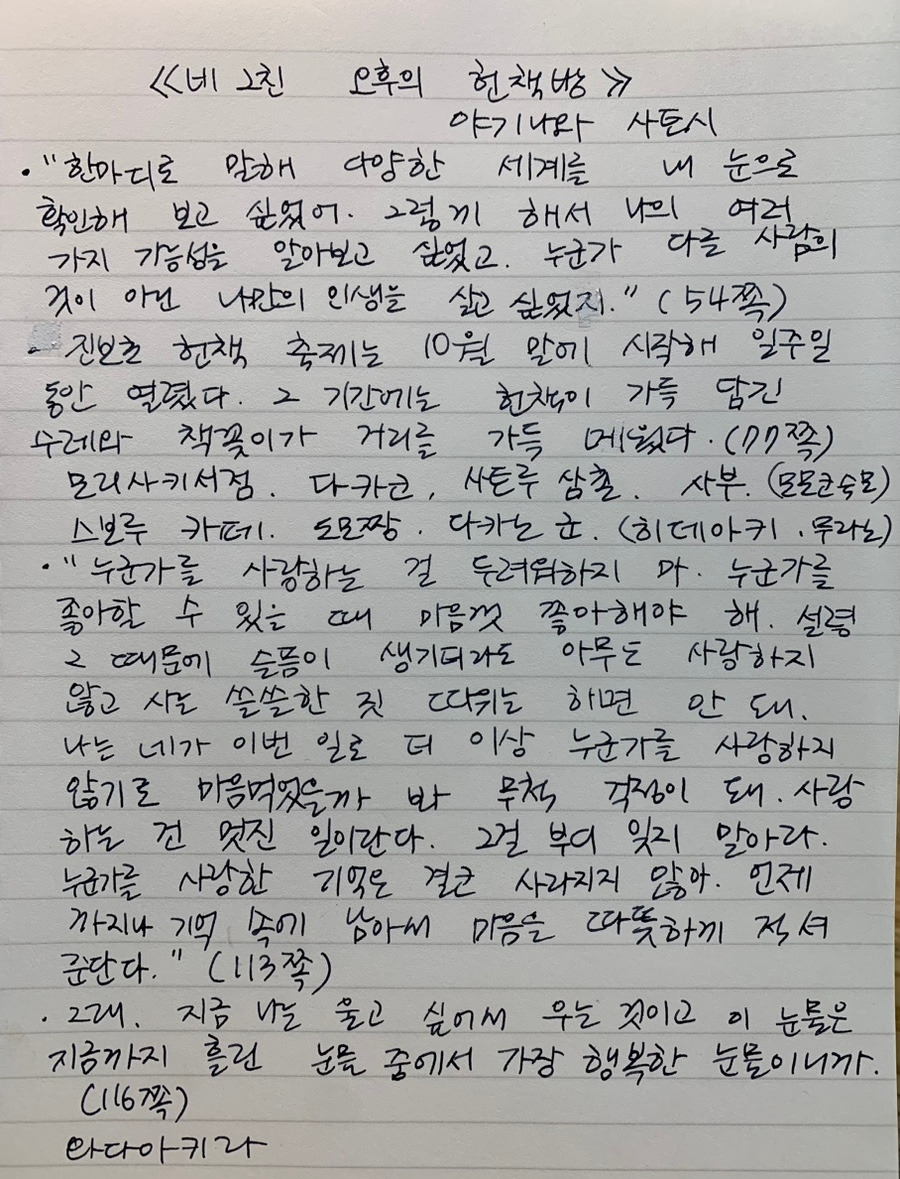 <<비 그친 오후의 헌책방>>
야기사와 사토시
· "한마디로 말해 다양한 세계를 내 눈으로
확인해 보고 싶었어. 그렇게 해서 나의 여러
가지 가능성을 알아보고 싶었고. 누군가 다를 사람의
것이 아닌 나만의 인생을 살고 싶었지." (54쪽)
· 진보초 헌책 축제는 10월 말에 시작해 일주일
동안 열렸다. 그 기간에는 헌책이 가득 담긴
수레와 책꽂이가 거리를 가득 메웠다. (77쪽)
모리사키서점. 다카코, 사토루 삼촌. 사부. (모모코숙모)
스보루 카페. 도모짱. 다카노 군. (히데아키. 무라노)
· "누군가를 사랑하는 걸 두려워하지 마. 누군가를
좋아할 수 있는 때 마음껏 좋아해야 해. 설령
그 때문에 슬픔이 생기더라도 아무도 사랑하지
않고 사는 쓸쓸한 짓 따위는 하면 안 돼.
나는 네가 이번 일로 더 이상 누군가를 사랑하지
않기로 마음먹었을까 봐 무척 걱정이 돼. 사랑
하는 건 멋진 일이란다. 그걸 부디 잊지 말아라.
누군가를 사랑한 기억은 결코 사라지지 않아. 언제
까지나 기억 속에 남아서 마음을 따뜻하게 적셔
준단다." (113쪽)
· 그래. 지금 나는 울고 싶어서 우는 것이고 이 눈물은
지금까지 흘린 눈물 중에서 가장 행복한 눈물이니까.
(116쪽)
와다아키라